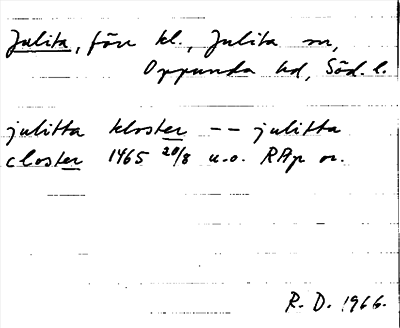 Julita, förr kl., Julita sn,
Oppunda hd, Söd. l.
julitta kloster -- julitta
closter 1465 20/8 u.o. RAp or.
R. D. 1966.